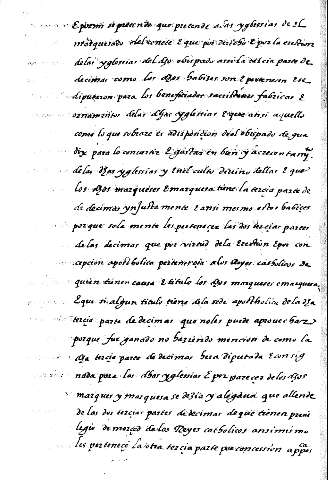 E por mi se pretendio que pretende a las yglesias de el
marquesado del cenete E que por derecho E por la erection
de las yglesias del dho obispado assi la tercia parte de
decimas como los dhos habises son E pertenecen E se
diputaron para los beneficiados sacristanes fabricas E
ornamentos de las dhas yglesias E que ansi aquello
como lo que sobrare es a disposicion del obispado de gua
dix para lo convertir E gastar en bien y acresentami.o
de las dhas yglesias y en el culto divino dellas E que
los dhos marqueses E marquesa tiene la tercia parte de
de decimas ynjustamente E ansi mesmo estos habises
porque solamente les pertenecen las dos tercias partes
de las decimas que por virtud de la Erection E por con
cepcion apostholica pertenescia a los Reyes catholicos de
quien tienen causa E titulo los dhos marqueses E marquesa
E que si algun titulo tiene de la sede apostholica de la dha
tercia parte de decimas que no les puede aprouechar
porque fue ganado no haziendo mencion de como la
dha tercia parte de decimas hera diputada E consig
nada para las dhas yglesias E por parecer de los dhos
marques y marquesa se dezia y alegaua que allende
de las dos tercias partes de decimas de que tienen preui
legio de merced de los Reyes catholicos ansimismo
les pertenece la otra tercia parte por concession appca